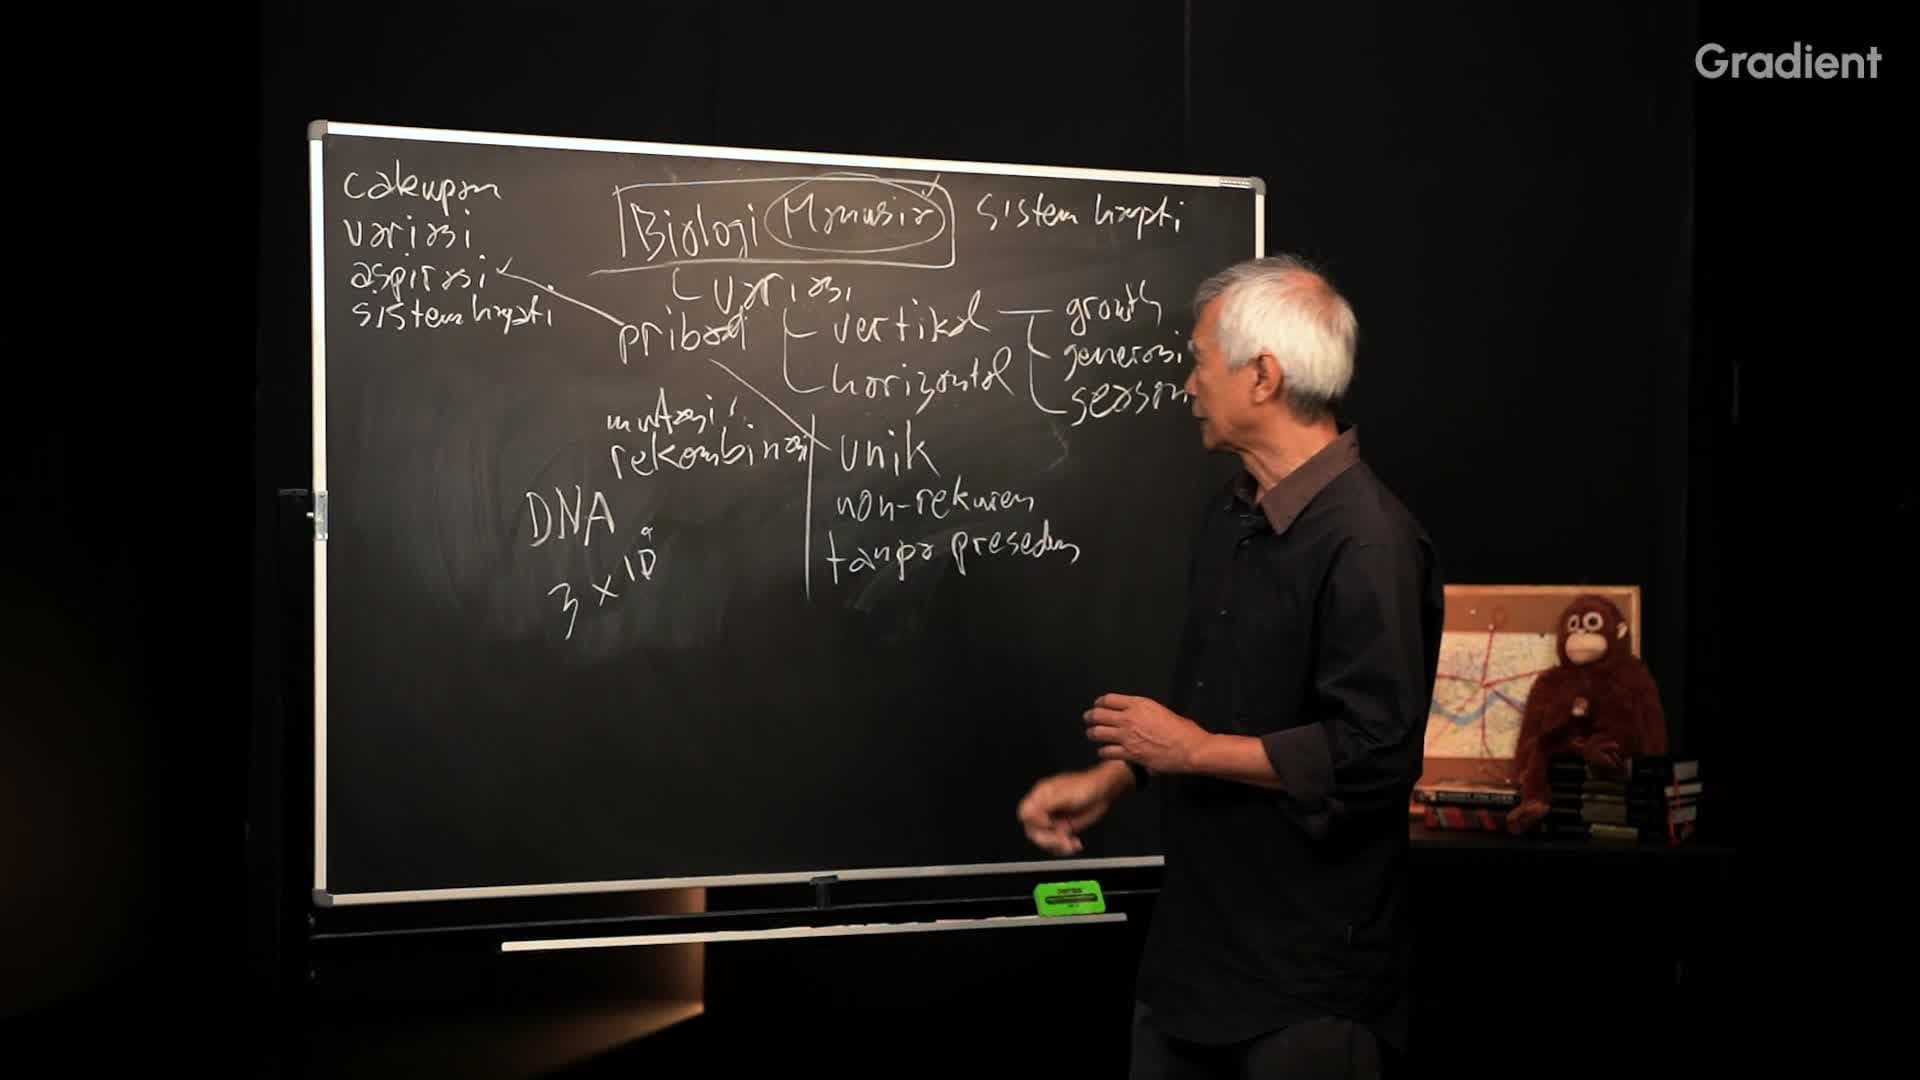 Gradient
cakupan
variasi
aspirasi
sistem hayati
Biologi Manusia
sistem hayati
variasi
pribadi
vertikal
horizontal
growth
generasi
season
mutasi
rekombinasi
DNA
3 x 10⁹
unik
non-rekuren
tanpa preseden